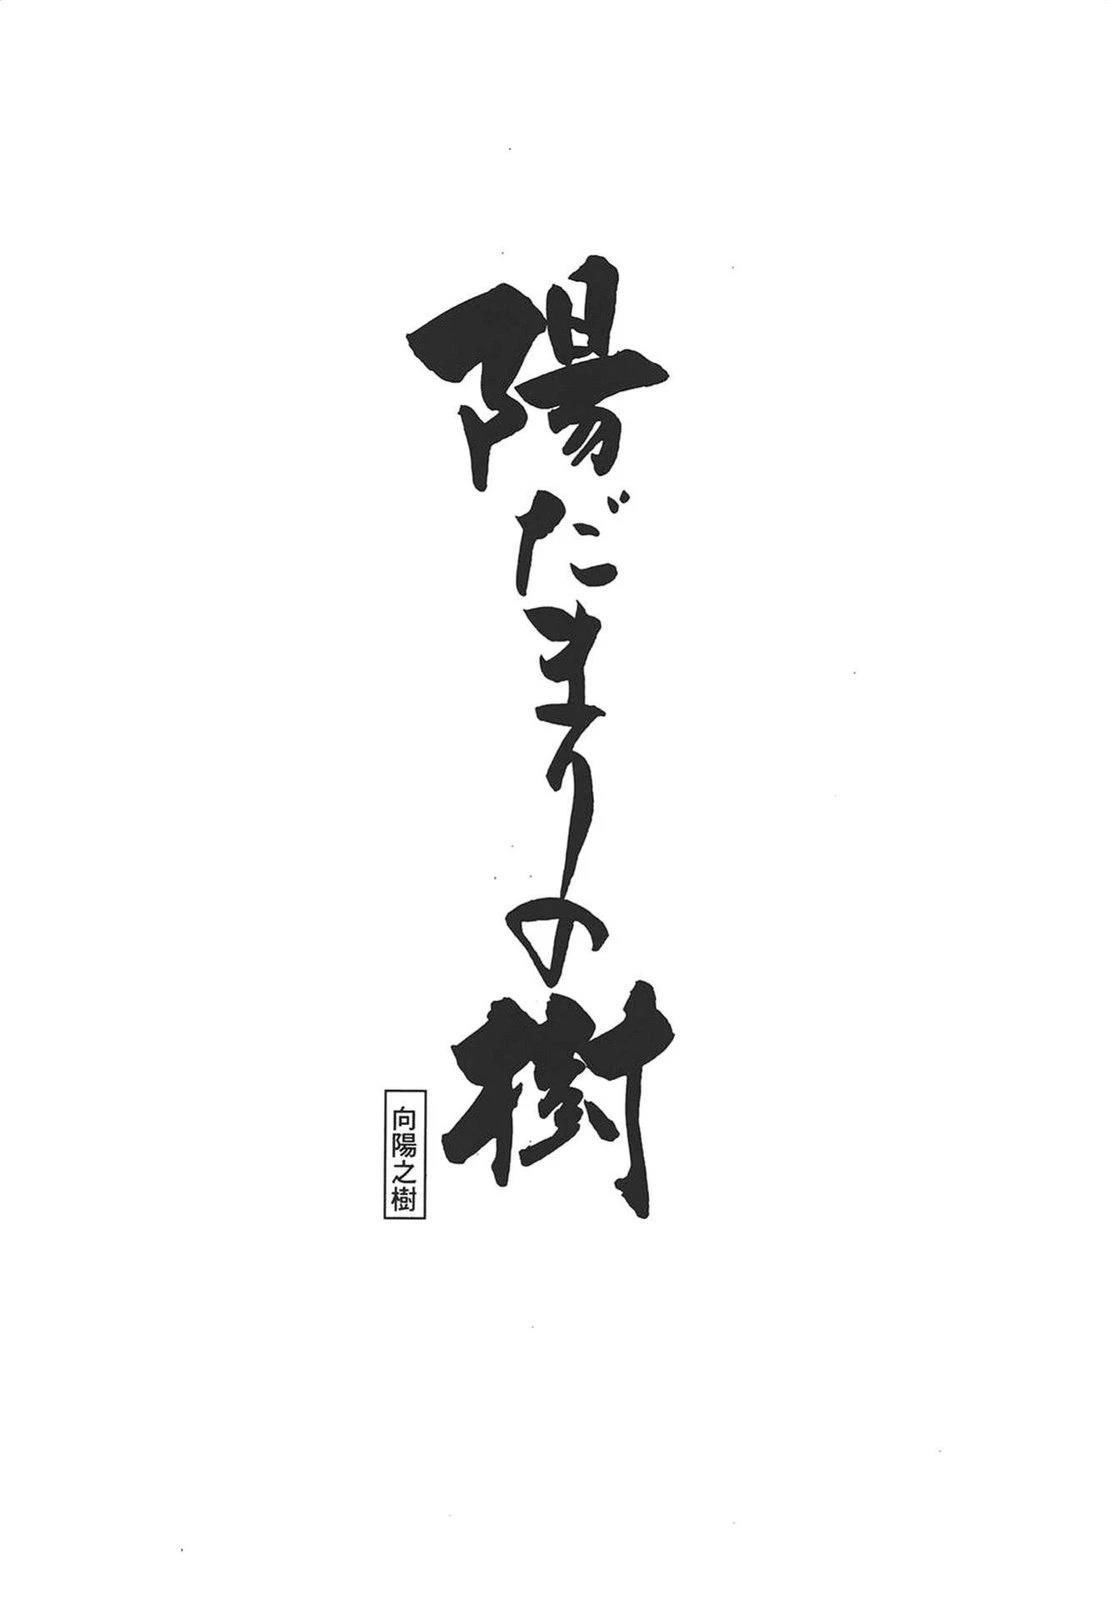 陽だまりの樹
向陽之樹